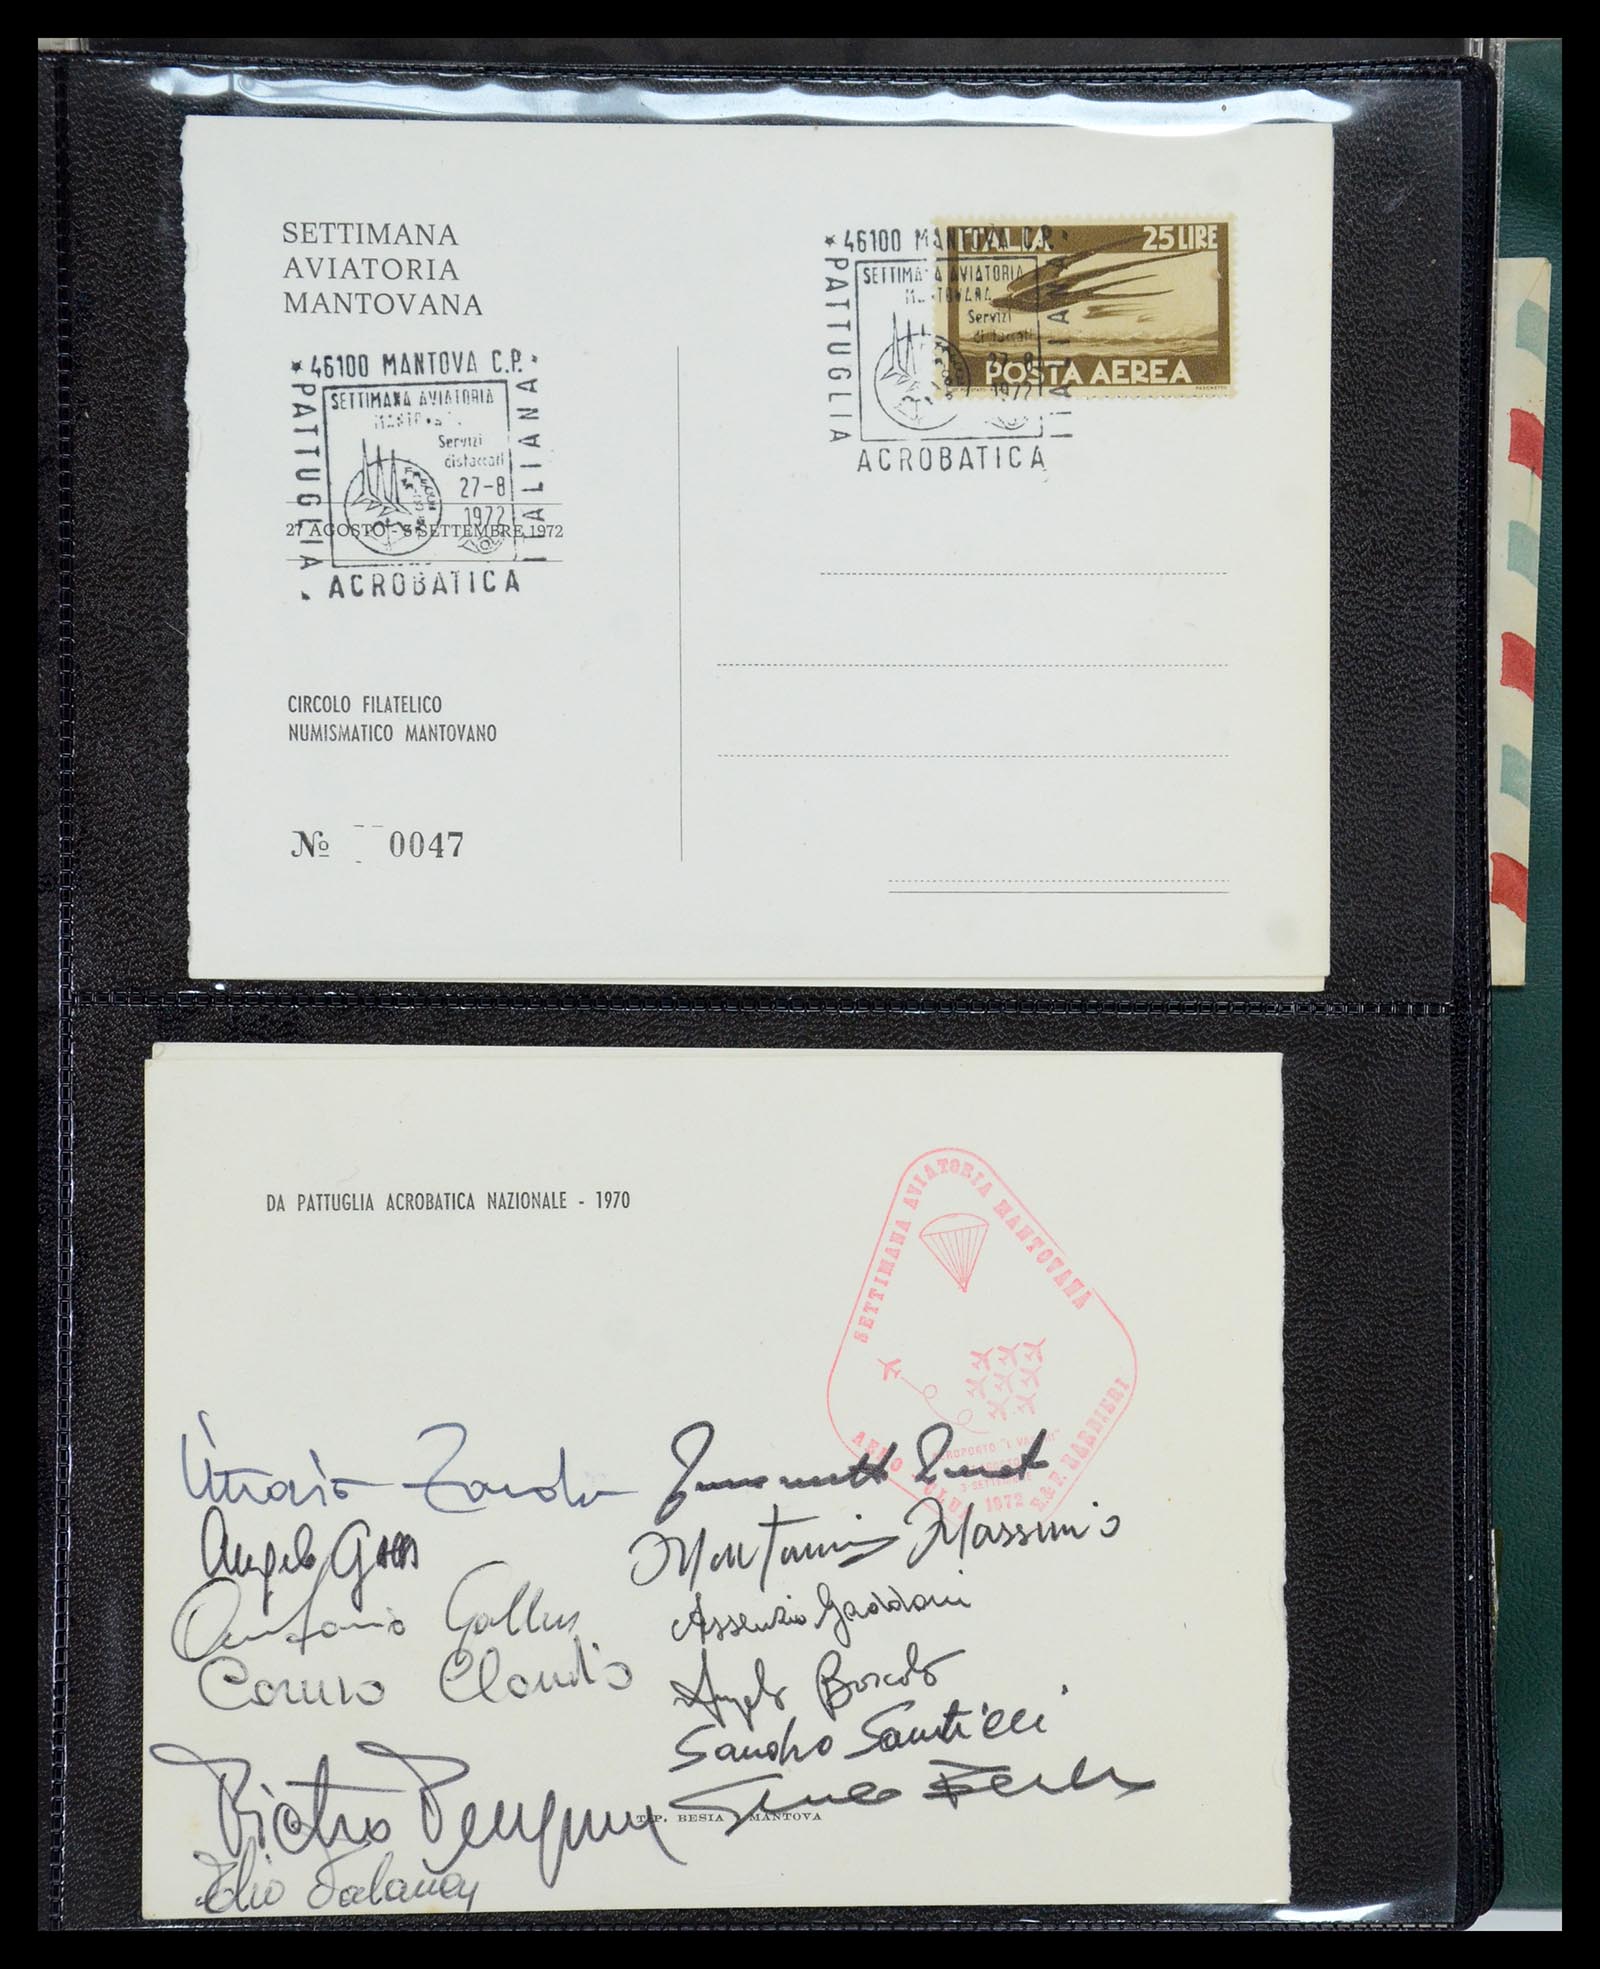 SETTIMANA
AVIATORIA
MANTOVANA
* 46100 MANTOVA C.P. *
PATTUGLIA
SETTIMANA AVIATORIA
Servizi
distaccati
27-8
1972
ITALIANA
ACROBATICA
27 AGOSTO - 3 SETTEMBRE 1972
CIRCOLO FILATELICO
NUMISMATICO MANTOVANO
№ 0047
* 46100 MANTOVA C.P. *
PATTUGLIA
SETTIMANA AVIATORIA
MANTOVANA
Servizi
distaccati
27-8
1972
ITALIANA
ACROBATICA
ITALIA
25 LIRE
POSTA AEREA
DA PATTUGLIA ACROBATICA NAZIONALE - 1970
SETTIMANA AVIATORIA MANTOVANA
AEROPORTO
3 SETTEMBRE
1972
AERO CLUB
BARBIERI
Angelo
Montanari Massimo
Antonio Gallus
Assenzio Gaddoni
Caruso Claudio
Angelo Boscolo
Sandro Santilli
Pietro Purpura
TIP. BESIA - MANTOVA